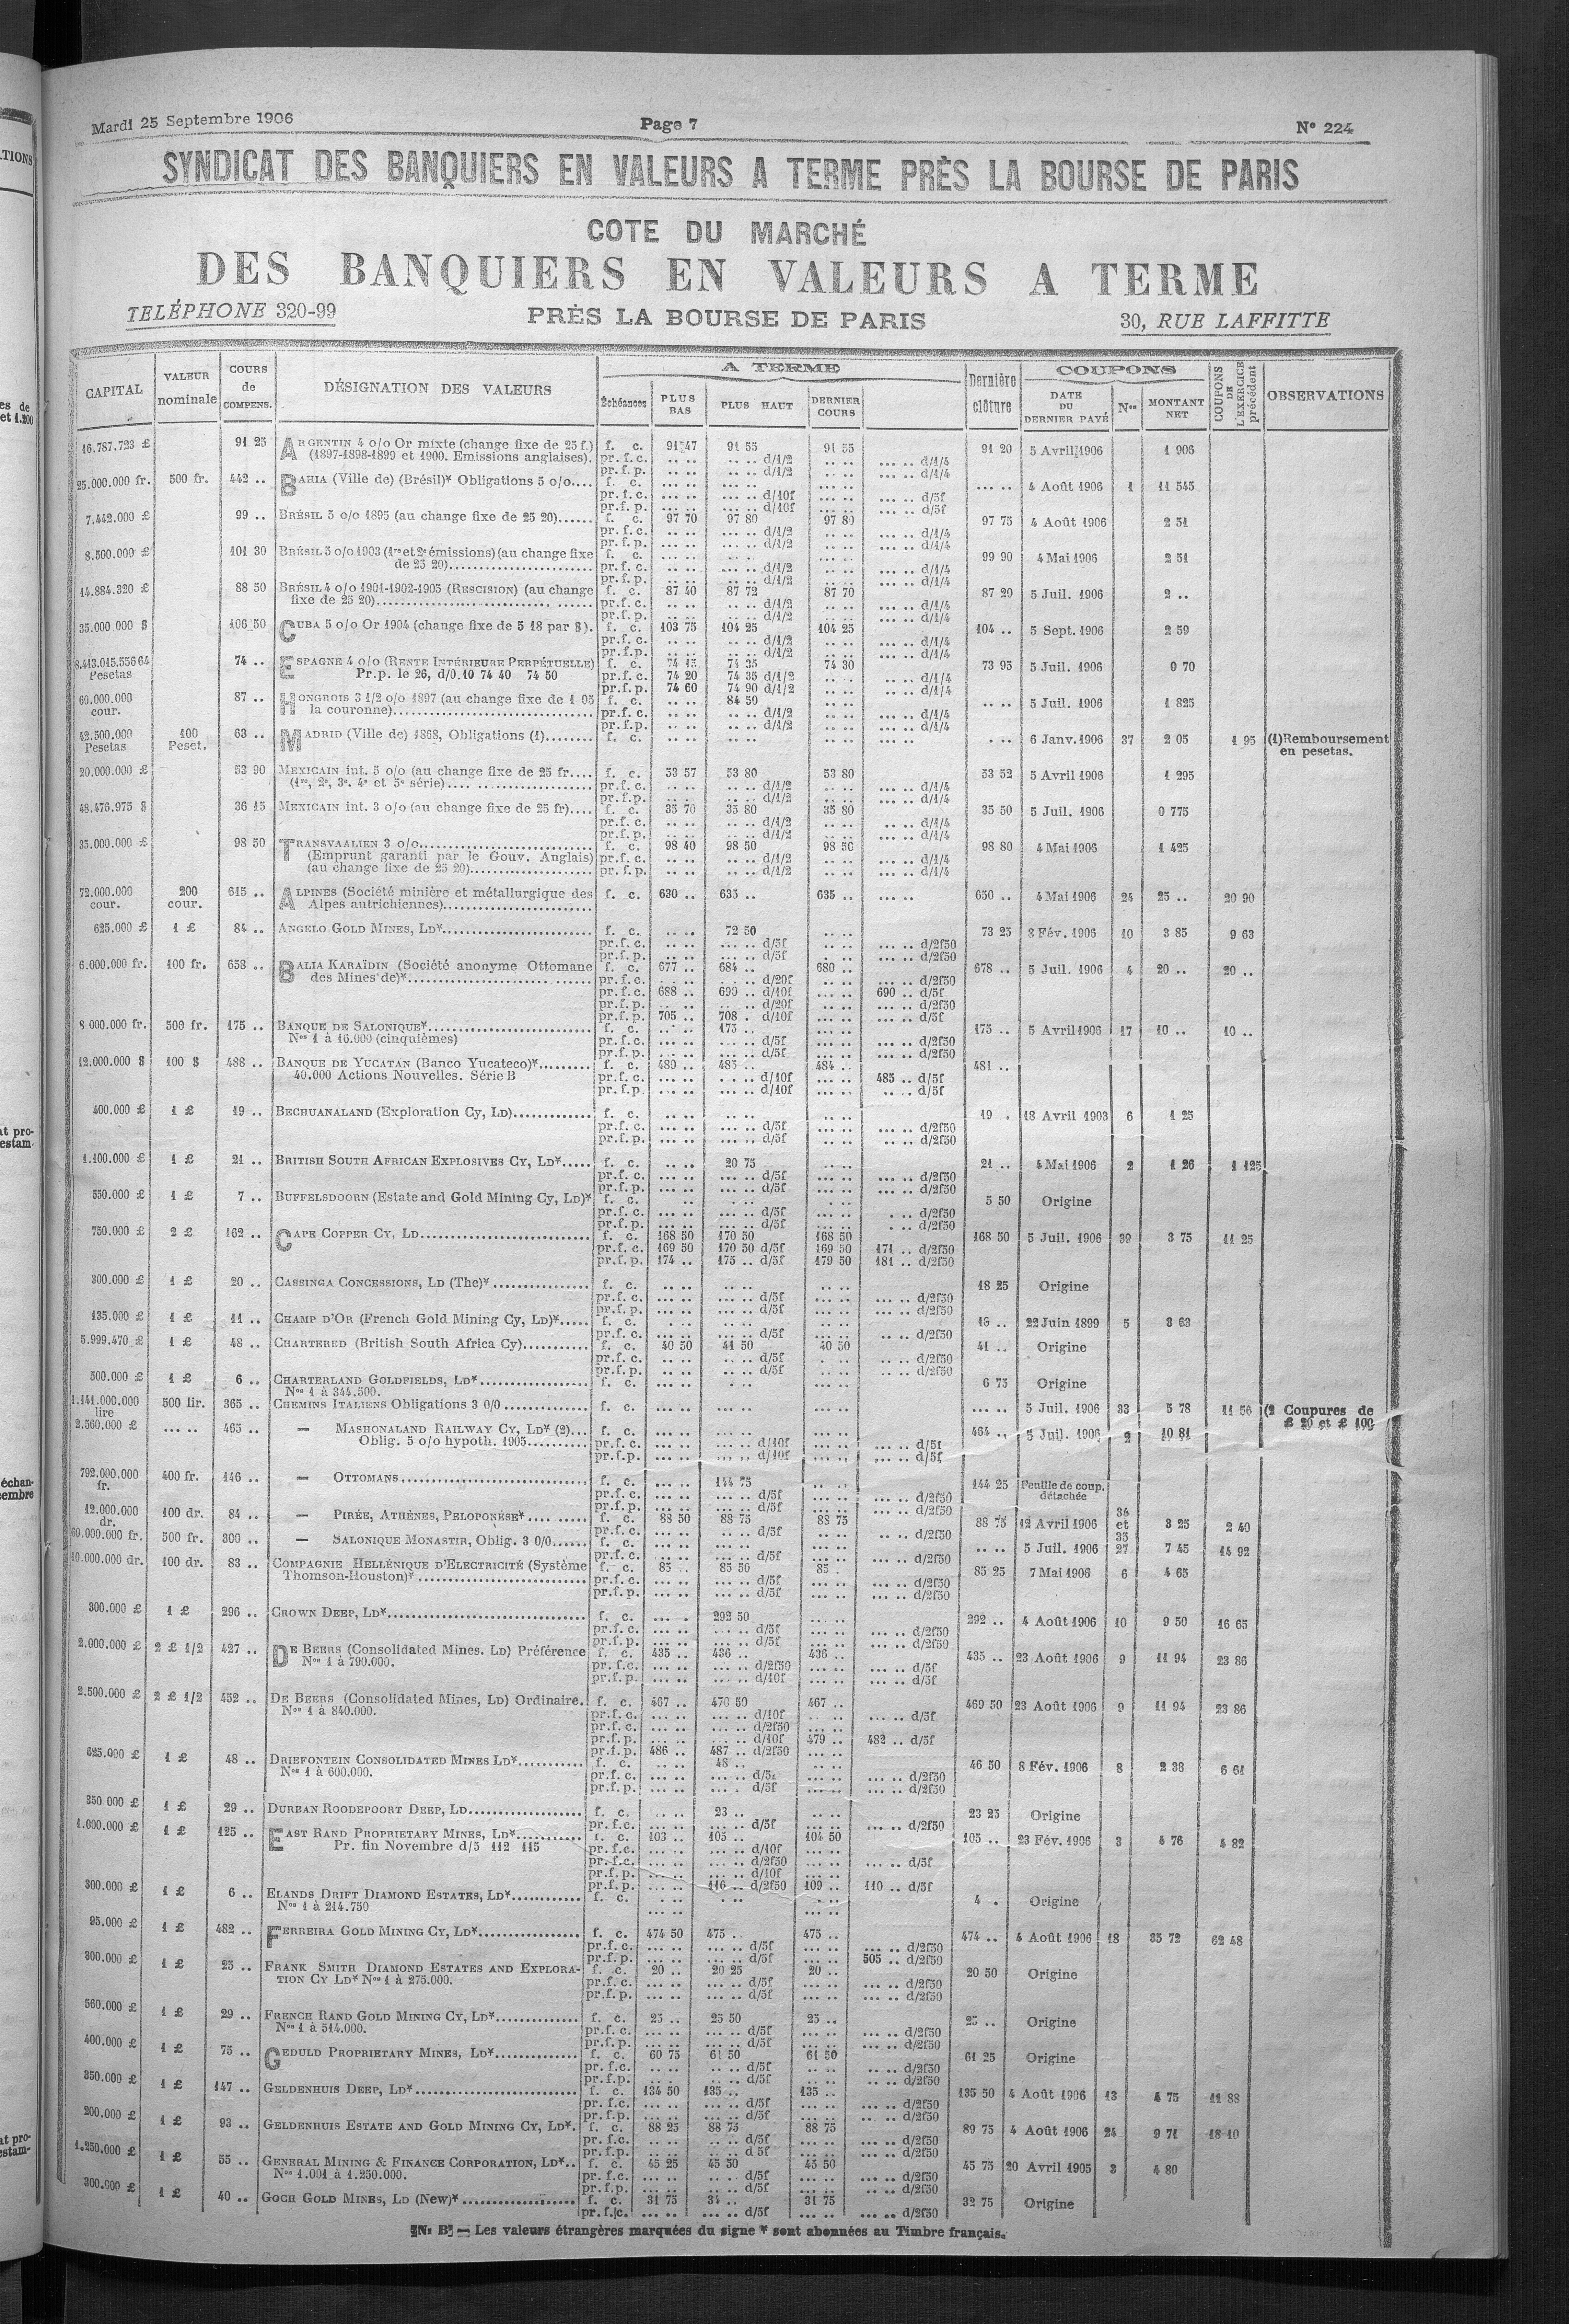 Mardi 25 Septembre 1906 Page 7 N° 224
SYNDICAT DES BANQUIERS EN VALEURS A TERME PRÈS LA BOURSE DE PARIS
COTE DU MARCHÉ
DES BANQUIERS EN VALEURS A TERME
TELÉPHONE 320-99 PRÈS LA BOURSE DE PARIS 30, RUE LAFFITTE
CAPITAL VALEUR nominale COURS de COMPENS. DÉSIGNATION DES VALEURS A TERME Échéances PLUS BAS PLUS HAUT DERNIER COURS Dernière clôture COUPONS DATE DU DERNIER PAYÉ Nos MONTANT NET COUPONS DE L'EXERCICE précédent OBSERVATIONS
16.787.723 £ 91 25 ARGENTIN 4 o/o Or mixte (change fixe de 25 f.) f. c. 91 47 91 55 91 55 91 20 5 Avril 1906 1 906
(1897-1898-1899 et 1900. Emissions anglaises). pr. f. c. .. .. .. .. d/1/2 .. .. ... .. d/1/4
pr. f. p. .. .. .. .. d/1/2 .. .. ... .. d/1/4
25.000.000 fr. 500 fr. 442 .. BAHIA (Ville de) (Brésil)* Obligations 5 o/o.... f. c. ... .. ... .. ... .. ... .. 4 Août 1906 1 11 545
pr. f. c. ... .. ... .. d/10f ... .. ... .. d/5f
pr. f. p. ... .. ... .. d/10f ... .. ... .. d/5f
7.442.000 £ 99 .. BRÉSIL 5 o/o 1895 (au change fixe de 25 20)...... f. c. 97 70 97 80 97 80 97 75 4 Août 1906 2 51
pr. f. c. .. .. .. .. d/1/2 .. .. ... .. d/1/4
pr. f. p. .. .. .. .. d/1/2 .. .. ... .. d/1/4
8.500.000 £ 101 30 BRÉSIL 5 o/o 1903 (1re et 2e émissions) (au change fixe f. c. ... .. ... .. ... .. 99 90 4 Mai 1906 2 51
de 25 20)........................ pr. f. c. .. .. .. .. d/1/2 .. .. ... .. d/1/4
pr. f. p. .. .. .. .. d/1/2 .. .. ... .. d/1/4
14.884.320 £ 88 50 BRÉSIL 4 o/o 1901-1902-1905 (RESCISION) (au change f. c. 87 40 87 72 87 70 87 20 5 Juil. 1906 2 ..
fixe de 25 20)........................ pr. f. c. .. .. .. .. d/1/2 .. .. ... .. d/1/4
pr. f. p. .. .. .. .. d/1/2 .. .. ... .. d/1/4
35.000 000 $ 106 50 CUBA 5 o/o Or 1904 (change fixe de 5 18 par $). f. c. 103 75 104 25 104 25 104 .. 5 Sept. 1906 2 59
pr. f. c. .. .. .. .. d/1/2 .. .. ... .. d/1/4
pr. f. p. .. .. .. .. d/1/2 .. .. ... .. d/1/4
8.413.015.556 64 Pesetas 74 .. ESPAGNE 4 o/o (RENTE INTÉRIEURE PERPÉTUELLE) f. c. 74 15 74 35 74 30 73 95 5 Juil. 1906 0 70
Pr.p. le 26, d/0.10 74 40 74 50 pr. f. c. 74 20 74 35 d/1/2 .. .. ... .. d/1/4
pr. f. p. 74 60 74 90 d/1/2 .. .. ... .. d/1/4
60.000.000 cour. 87 .. HONGROIS 3 1/2 o/o 1897 (au change fixe de 1 05 f. c. .. .. 84 50 .. .. 5 Juil. 1906 1 825
la couronne)........................ pr. f. c. .. .. .. .. d/1/2 .. .. ... .. d/1/4
pr. f. p. .. .. .. .. d/1/2 .. .. ... .. d/1/4
42.500.000 Pesetas 100 Peset. 63 .. MADRID (Ville de) 1868, Obligations (1)........ f. c. .. .. .. .. .. .. ... .. 6 Janv. 1906 37 2 05 1 95 (1) Remboursement en pesetas.
20.000.000 £ 53 90 MEXICAIN int. 5 o/o (au change fixe de 25 fr.... f. c. 53 57 53 80 53 80 53 52 5 Avril 1906 1 295
(1re, 2e, 3e, 4e et 5e série).................... pr. f. c. .. .. .. .. d/1/2 .. .. ... .. d/1/4
pr. f. p. .. .. .. .. d/1/2 .. .. ... .. d/1/4
48.476.975 $ 36 15 MEXICAIN int. 3 o/o (au change fixe de 25 fr).... f. c. 35 70 35 80 35 80 35 50 5 Juil. 1906 0 775
pr. f. c. .. .. .. .. d/1/2 .. .. ... .. d/1/4
pr. f. p. .. .. .. .. d/1/2 .. .. ... .. d/1/4
35.000.000 £ 98 50 TRANSVAALIEN 3 o/o........................ f. c. 98 40 98 50 98 50 98 80 4 Mai 1906 1 425
(Emprunt garanti par le Gouv. Anglais) pr. f. c. .. .. .. .. d/1/2 .. .. ... .. d/1/4
(au change fixe de 25 20).................... pr. f. p. .. .. .. .. d/1/2 .. .. ... .. d/1/4
72.000.000 cour. 200 cour. 615 .. ALPINES (Société minière et métallurgique des f. c. 630 .. 635 .. 635 .. ... .. 630 .. 4 Mai 1906 24 25 .. 20 90
Alpes autrichiennes)........................
625.000 £ 1 £ 84 .. ANGELO GOLD MINES, LD*........................ f. c. .. .. 72 50 .. .. 73 25 8 Fév. 1906 10 3 85 9 63
pr. f. c. ... .. ... .. d/5f ... .. ... .. d/2f50
pr. f. p. ... .. ... .. d/5f ... .. ... .. d/2f50
6.000.000 fr. 100 fr. 658 .. BALIA KARAÏDIN (Société anonyme Ottomane f. c. 677 .. 684 .. 680 .. 678 .. 5 Juil. 1906 4 20 .. 20 ..
des Mines de)*........................ pr. f. c. ... .. ... .. d/20f ... .. ... .. d/2f50
pr. f. c. 688 .. 690 .. d/10f ... .. 690 .. d/5f
pr. f. p. ... .. ... .. d/20f ... .. ... .. d/2f50
pr. f. p. 705 .. 708 . d/10f ... .. ... .. d/5f
8 000.000 fr. 500 fr. 175 .. BANQUE DE SALONIQUE*........................ f. c. ... .. 175 .. ... .. 175 .. 5 Avril 1906 17 10 .. 10 ..
Nos 1 à 16.000 (cinquièmes) pr. f. c. ... .. ... .. d/5f ... .. ... .. d/2f50
pr. f. p. ... .. ... .. d/5f ... .. ... .. d/2f50
12.000.000 $ 100 $ 488 .. BANQUE DE YUCATAN (Banco Yucateco)*......... f. c. 480 .. 485 .. 484 .. 481 ..
40.000 Actions Nouvelles. Série B pr. f. c. ... .. ... .. d/10f ... .. 485 .. d/5f
pr. f. p. ... .. ... .. d/10f ... .. ... .. d/5f
400.000 £ 1 £ 19 .. BECHUANALAND (Exploration Cy, LD)............. f. c. .. .. .. .. .. .. 19 . 18 Avril 1903 6 1 25
pr. f. c. ... .. ... .. d/5f ... .. ... .. d/2f50
pr. f. p. ... .. ... .. d/5f ... .. ... .. d/2f50
1.100.000 £ 1 £ 21 .. BRITISH SOUTH AFRICAN EXPLOSIVES CY, LD*..... f. c. .. .. 20 75 .. .. 21 .. 4 Mai 1906 2 1 26 1 125
pr. f. c. ... .. ... .. d/5f ... .. ... .. d/2f50
pr. f. p. ... .. ... .. d/5f ... .. ... .. d/2f50
550.000 £ 1 £ 7 .. BUFFELSDOORN (Estate and Gold Mining Cy, LD)* f. c. .. .. .. .. .. .. 5 50 Origine
pr. f. c. ... .. ... .. d/5f ... .. ... .. d/2f50
pr. f. p. ... .. ... .. d/5f ... .. ... .. d/2f50
750.000 £ 2 £ 162 .. CAPE COPPER CY, LD........................ f. c. 168 50 170 50 168 50 168 50 5 Juil. 1906 39 3 75 11 25
pr. f. c. 169 50 170 50 d/5f 169 50 171 .. d/2f50
pr. f. p. 174 .. 175 .. d/5f 179 50 181 .. d/2f50
300.000 £ 1 £ 20 .. CASSINGA CONCESSIONS, LD (The)*................ f. c. .. .. .. .. .. .. 18 25 Origine
pr. f. c. ... .. ... .. d/5f ... .. ... .. d/2f50
pr. f. p. ... .. ... .. d/5f ... .. ... .. d/2f50
135.000 £ 1 £ 11 .. CHAMP D'OR (French Gold Mining Cy, LD)*..... f. c. .. .. .. .. .. .. 15 .. 22 Juin 1899 5 3 63
pr. f. c. ... .. ... .. d/5f ... .. ... .. d/2f50
5.999.470 £ 1 £ 48 .. CHARTERED (British South Africa Cy)........... f. c. 40 50 41 50 40 50 41 .. Origine
pr. f. c. .. .. .. .. d/5f .. .. .. .. d/2f50
pr. f. p. .. .. .. .. d/5f .. .. .. .. d/2f50
500.000 £ 1 £ 6 .. CHARTERLAND GOLDFIELDS, LD*.................. f. c. ... .. .. .. ... .. 6 75 Origine
Nos 1 à 344.500.
1.141.000.000 lire 500 lir. 365 .. CHEMINS ITALIENS Obligations 3 0/0............. f. c. ... .. ... .. ... .. ... .. ... .. 5 Juil. 1906 33 5 78 11 56 (2 Coupures de £ 20 et £ 100
2.560.000 £ ... .. 465 .. — MASHONALAND RAILWAY CY, LD* (2)... f. c. ... .. ... .. ... .. 464 .. 5 Juil. 1906 2 10 81
Oblig. 5 o/o hypoth. 1905.......... pr. f. c. ... .. ... .. d/10f ... .. ... .. d/5f
pr. f. p. ... .. ... .. d/10f ... .. ... .. d/5f
792.000.000 fr. 400 fr. 146 .. — OTTOMANS........................ f. c. ... .. 144 75 ... .. 144 25 Feuille de coup. détachée
pr. f. c. ... .. ... .. d/5f ... .. ... .. d/2f50
pr. f. p. ... .. ... .. d/5f ... .. ... .. d/2f50
12.000.000 dr. 100 dr. 84 .. — PIRÉE, ATHÈNES, PELOPONÈSE*.......... f. c. 88 50 88 75 88 75 88 75 12 Avril 1906 34 et 35 3 25 2 40
pr. f. c. ... .. ... .. d/5f ... .. ... .. d/2f50
60.000.000 fr. 500 fr. 300 .. — SALONIQUE MONASTIR, Oblig. 3 0/0...... f. c. ... .. ... .. ... .. .. .. 5 Juil. 1906 27 7 45 14 92
pr. f. c. ... .. ... .. d/5f ... .. ... .. d/2f50
10.000.000 dr. 100 dr. 83 .. COMPAGNIE HELLÉNIQUE D'ELECTRICITÉ (Système f. c. 85 .. 85 50 85 . 85 25 7 Mai 1906 6 4 65
Thomson-Houston)*........................ pr. f. c. ... .. ... .. d/5f ... .. ... .. d/2f50
pr. f. p. ... .. ... .. d/5f ... .. ... .. d/2f50
300.000 £ 1 £ 296 .. CROWN DEEP, LD*........................ f. c. ... . 292 50 ... .. 292 .. 4 Août 1906 10 9 50 16 65
pr. f. c. ... .. ... .. d/5f ... .. ... .. d/2f50
pr. f. p. ... .. ... .. d/5f ... .. ... .. d/2f50
2.000.000 £ 2 £ 1/2 427 .. DE BEERS (Consolidated Mines. LD) Préférence f. c. 435 .. 436 .. 436 .. 435 .. 23 Août 1906 9 11 94 23 86
Nos 1 à 790.000. pr. f. c. ... .. ... .. d/2f50 ... .. ... .. d/5f
pr. f. p. ... .. ... .. d/10f ... .. ... .. d/5f
2.500.000 £ 2 £ 1/2 452 .. DE BEERS (Consolidated Mines, LD) Ordinaire. f. c. 467 .. 470 50 467 .. 469 50 23 Août 1906 9 11 94 23 86
Nos 1 à 840.000. pr. f. c. ... .. ... .. d/10f ... .. ... .. d/5f
pr. f. c. ... .. ... .. d/2f50 ... ..
pr. f. p. ... .. ... .. d/10f 479 .. 482 .. d/5f
pr. f. p. 486 .. 487 .. d/2f50 ... ..
625.000 £ 1 £ 48 .. DRIEFONTEIN CONSOLIDATED MINES LD*........... f. c. .. .. 48 .. .. .. 46 50 8 Fév. 1906 8 2 38 6 61
Nos 1 à 600.000. pr. f. c. ... .. ... .. ... .. ... .. d/2f50
pr. f. p. ... .. ... .. d/5f ... .. ... .. d/2f50
350 000 £ 1 £ 29 .. DURBAN ROODEPOORT DEEP, LD.................. f. c. .. .. 23 .. .. .. 23 25 Origine
pr. f. c. ... .. ... .. d/5f ... .. ... .. d/2f50
1.000.000 £ 1 £ 125 .. EAST RAND PROPRIETARY MINES, LD*........... f. c. 103 .. 105 .. 104 50 105 .. 23 Fév. 1906 3 4 76 4 82
Pr. fin Novembre d/5 112 115 pr. f. c. ... .. ... .. d/10f ... ..
pr. f. c. ... .. ... .. d/2f50 ... .. ... .. d/5f
pr. f. p. ... .. ... .. d/10f ... ..
pr. f. p. ... .. 116 .. d/2f50 109 .. 110 .. d/5f
300.000 £ 1 £ 6 .. ELANDS DRIFT DIAMOND ESTATES, LD*............ f. c. .. .. .. .. .. .. 4 . Origine
Nos 1 à 214.750
95.000 £ 1 £ 482 .. FERREIRA GOLD MINING CY, LD*................ f. c. 474 50 475 .. 475 .. 474 .. 4 Août 1906 18 35 72 62 48
pr. f. c. ... .. ... .. d/5f ... .. ... .. d/2f50
pr. f. p. ... .. ... .. d/5f ... .. 505 .. d/2f50
300.000 £ 1 £ 25 .. FRANK SMITH DIAMOND ESTATES AND EXPLORA- f. c. 20 .. 20 25 20 .. 20 50 Origine
TION CY LD* Nos 1 à 275.000. pr. f. c. ... .. ... .. d/5f ... .. ... .. d/2f50
pr. f. p. ... .. ... .. d/5f ... .. ... .. d/2f50
560.000 £ 1 £ 29 .. FRENCH RAND GOLD MINING CY, LD*.............. f. c. 25 .. 25 50 25 .. 25 .. Origine
Nos 1 à 514.000. pr. f. c. ... .. ... .. d/5f ... .. ... .. d/2f50
pr. f. p. ... .. ... .. d/5f ... .. ... .. d/2f50
400.000 £ 1 £ 75 .. GEDULD PROPRIETARY MINES, LD*.............. f. c. 60 75 61 50 61 50 61 25 Origine
pr. f. c. .. .. .. .. d/5f .. .. ... .. d/2f50
pr. f. p. .. .. .. .. d/5f .. .. ... .. d/2f50
350.000 £ 1 £ 147 .. GELDENHUIS DEEP, LD*........................ f. c. 134 50 135 .. 135 .. 135 50 4 Août 1906 13 4 75 11 88
pr. f. c. ... .. ... .. d/5f ... .. ... .. d/2f50
pr. f. p. ... .. ... .. d/5f ... .. ... .. d/2f50
200.000 £ 1 £ 93 .. GELDENHUIS ESTATE AND GOLD MINING CY, LD*. f. c. 88 25 88 75 88 75 89 75 4 Août 1906 24 9 71 18 10
pr. f. c. .. .. .. .. d/5f ... .. ... .. d/2f50
pr. f. p. ... .. ... .. d 5f ... .. ... .. d/2f50
1.250.000 £ 1 £ 55 .. GENERAL MINING & FINANCE CORPORATION, LD*.. f. c. 45 25 45 50 45 50 45 75 20 Avril 1905 3 4 80
Nos 1.001 à 1.250.000. pr. f. c. ... .. ... .. d/5f ... .. ... .. d/2f50
pr. f. p. ... .. ... .. d/5f ... .. ... .. d/2f50
300.000 £ 1 £ 40 .. GOCH GOLD MINES, LD (New)*................... f. c. 31 75 34 .. 31 75 32 75 Origine
pr. f. c. ... .. ... .. d/5f ... .. ... .. d/2f50
N. B. — Les valeurs étrangères marquées du signe * sont abonnées au Timbre français.